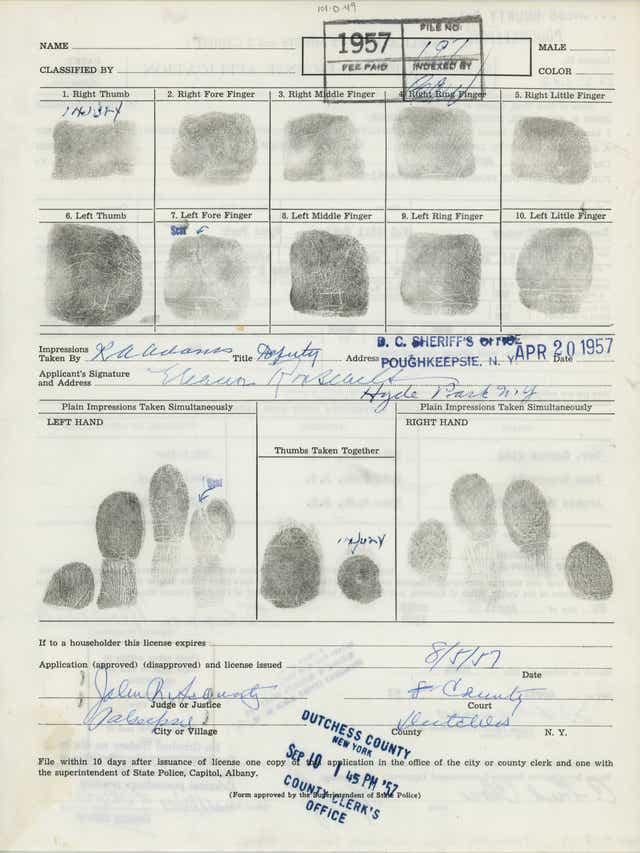 101-D-49
1957
FEE PAID
FILE NO.
197
INDEXED BY
NAME
MALE
CLASSIFIED BY
COLOR
1. Right Thumb 2. Right Fore Finger 3. Right Middle Finger 4. Right Ring Finger 5. Right Little Finger
INJURY
6. Left Thumb 7. Left Fore Finger 8. Left Middle Finger 9. Left Ring Finger 10. Left Little Finger
Scar
Impressions
Taken By R A Adams Title Deputy Address D. C. SHERIFF'S OFFICE
POUGHKEEPSIE, N. Y. APR 20 1957 Date
Applicant's Signature
and Address Eleanor Roosevelt
Hyde Park N.Y
Plain Impressions Taken Simultaneously
LEFT HAND
Thumbs Taken Together
Plain Impressions Taken Simultaneously
RIGHT HAND
INJURY
If to a householder this license expires
Application (approved) (disapproved) and license issued 8/5/57
Date
John R
Judge or Justice
County
Court
City or Village
Dutchess
County N. Y.
DUTCHESS COUNTY
NEW YORK
SEP 10 1 45 PM '57
COUNTY CLERK'S
OFFICE
File within 10 days after issuance of license one copy of this application in the office of the city or county clerk and one with
the superintendent of State Police, Capitol, Albany.
(Form approved by the Superintendent of State Police)